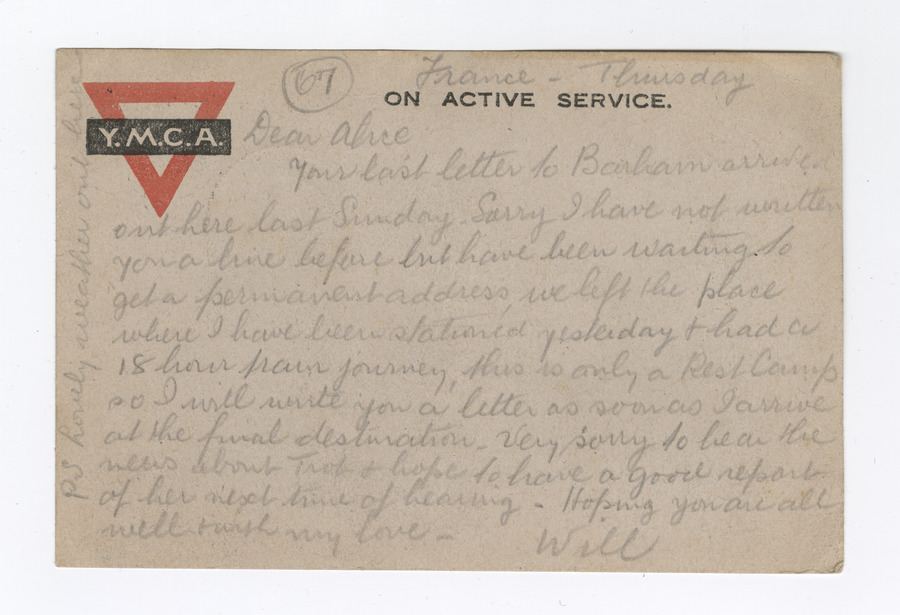 67
France - Thursday
ON ACTIVE SERVICE.
Y.M.C.A.
Dear Alice
Your last letter to Barham arrived
out here last Sunday. Sorry I have not written
you a line before but have been waiting to
get a permanent address, we left the place
where I have been stationed yesterday & had a
18 hour train journey, this is only a Rest Camp
so I will write you a letter as soon as I arrive
at the final destination - Very sorry to hear the
news about Trot & hope to have a good report
of her next time of hearing - Hoping you are all
well & with my love -
Will
P.S Lovely weather out here